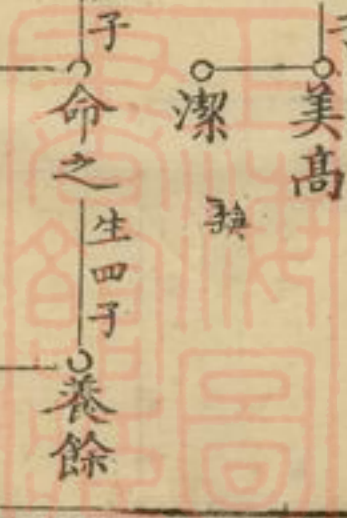 美高
潔
子
命之
生四子
養餘